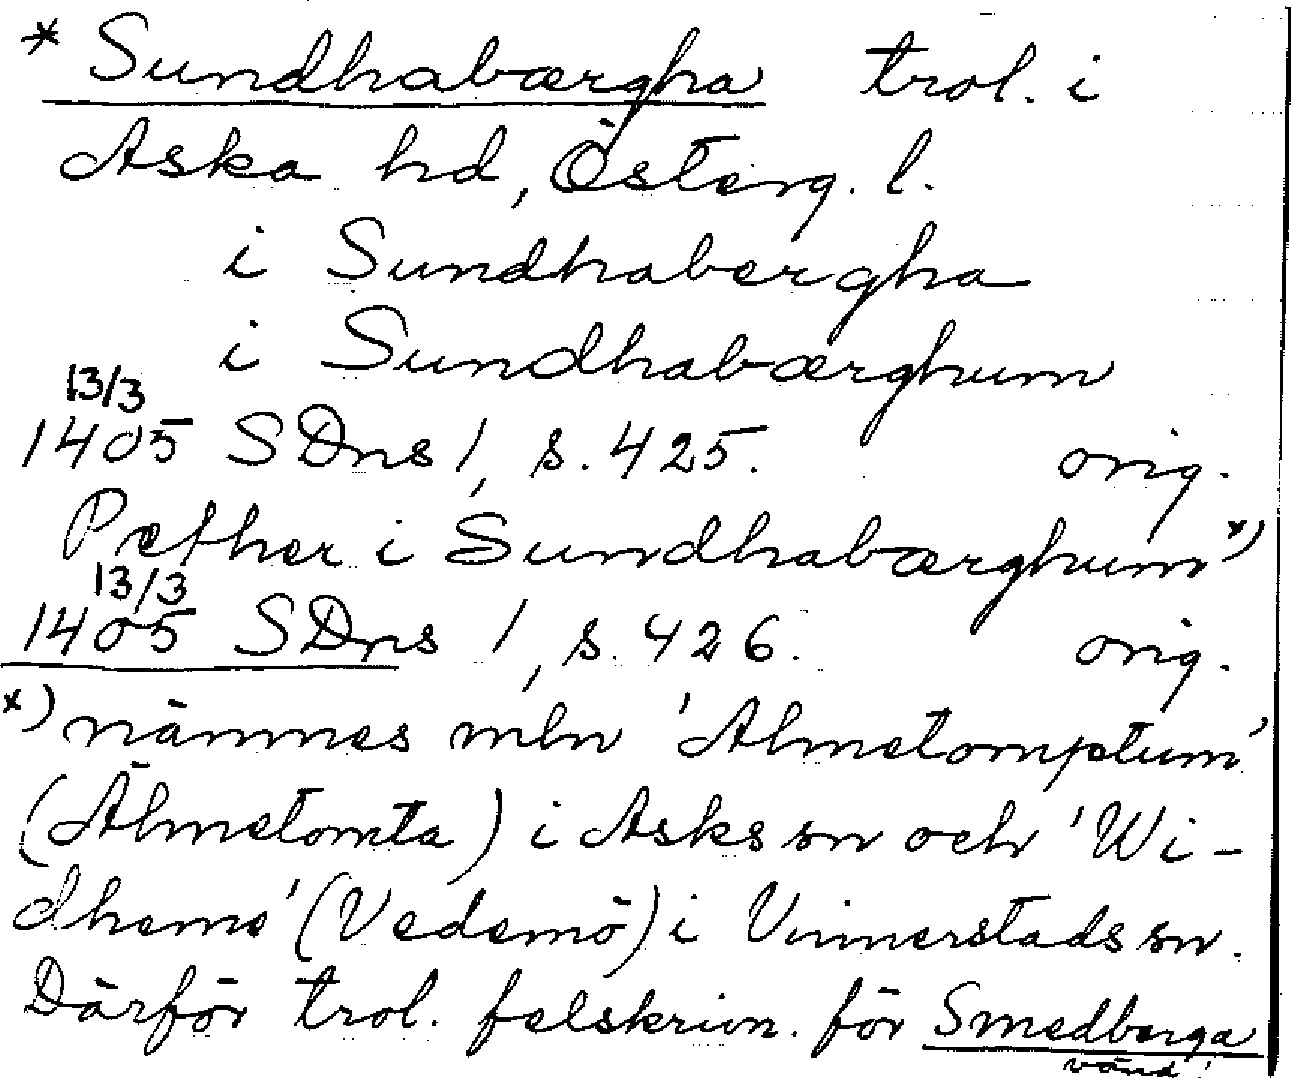 * Sundhabærgha trol. i
Aska hd, Österg. l.
i Sundhabergha
i Sundhabærghum
13/3
1405 SDns 1, s. 425. orig.
Pæther i Sundhabærghum *)
13/3
1405 SDns 1, s. 426. orig.
*) nämnes mln 'Almetomptum'
(Älmetomta) i Asks sn och 'Wi-
dhemø' (Vedemö) i Vinnerstads sn.
Därför trol. felskrivn. för Smedberga
vänd!